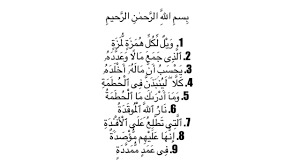 بِسمِ اللَّهِ الرَّحمٰنِ الرَّحيمِ
1. وَيْلٌ لِّكُلِّ هُمَزَةٍ لُّمَزَةٍ
2. الَّذِى جَمَعَ مَالًا وَعَدَّدَهُ
3. يَحْسَبُ أَنَّ مَالَهُ أَخْلَدَهُ
4. كَلَّا لَيُنْبَذَنَّ فِى الْحُطَمَةِ
5. وَمَا أَدْرَىٰكَ مَا الْحُطَمَةُ
6. نَارُ اللَّهِ الْمُوقَدَةُ
7. الَّتِى تَطَّلِعُ عَلَى الْأَفْئِدَةِ
8. إِنَّهَا عَلَيْهِم مُّؤْصَدَةٌ
9. فِى عَمَدٍ مُّمَدَّدَةٍ